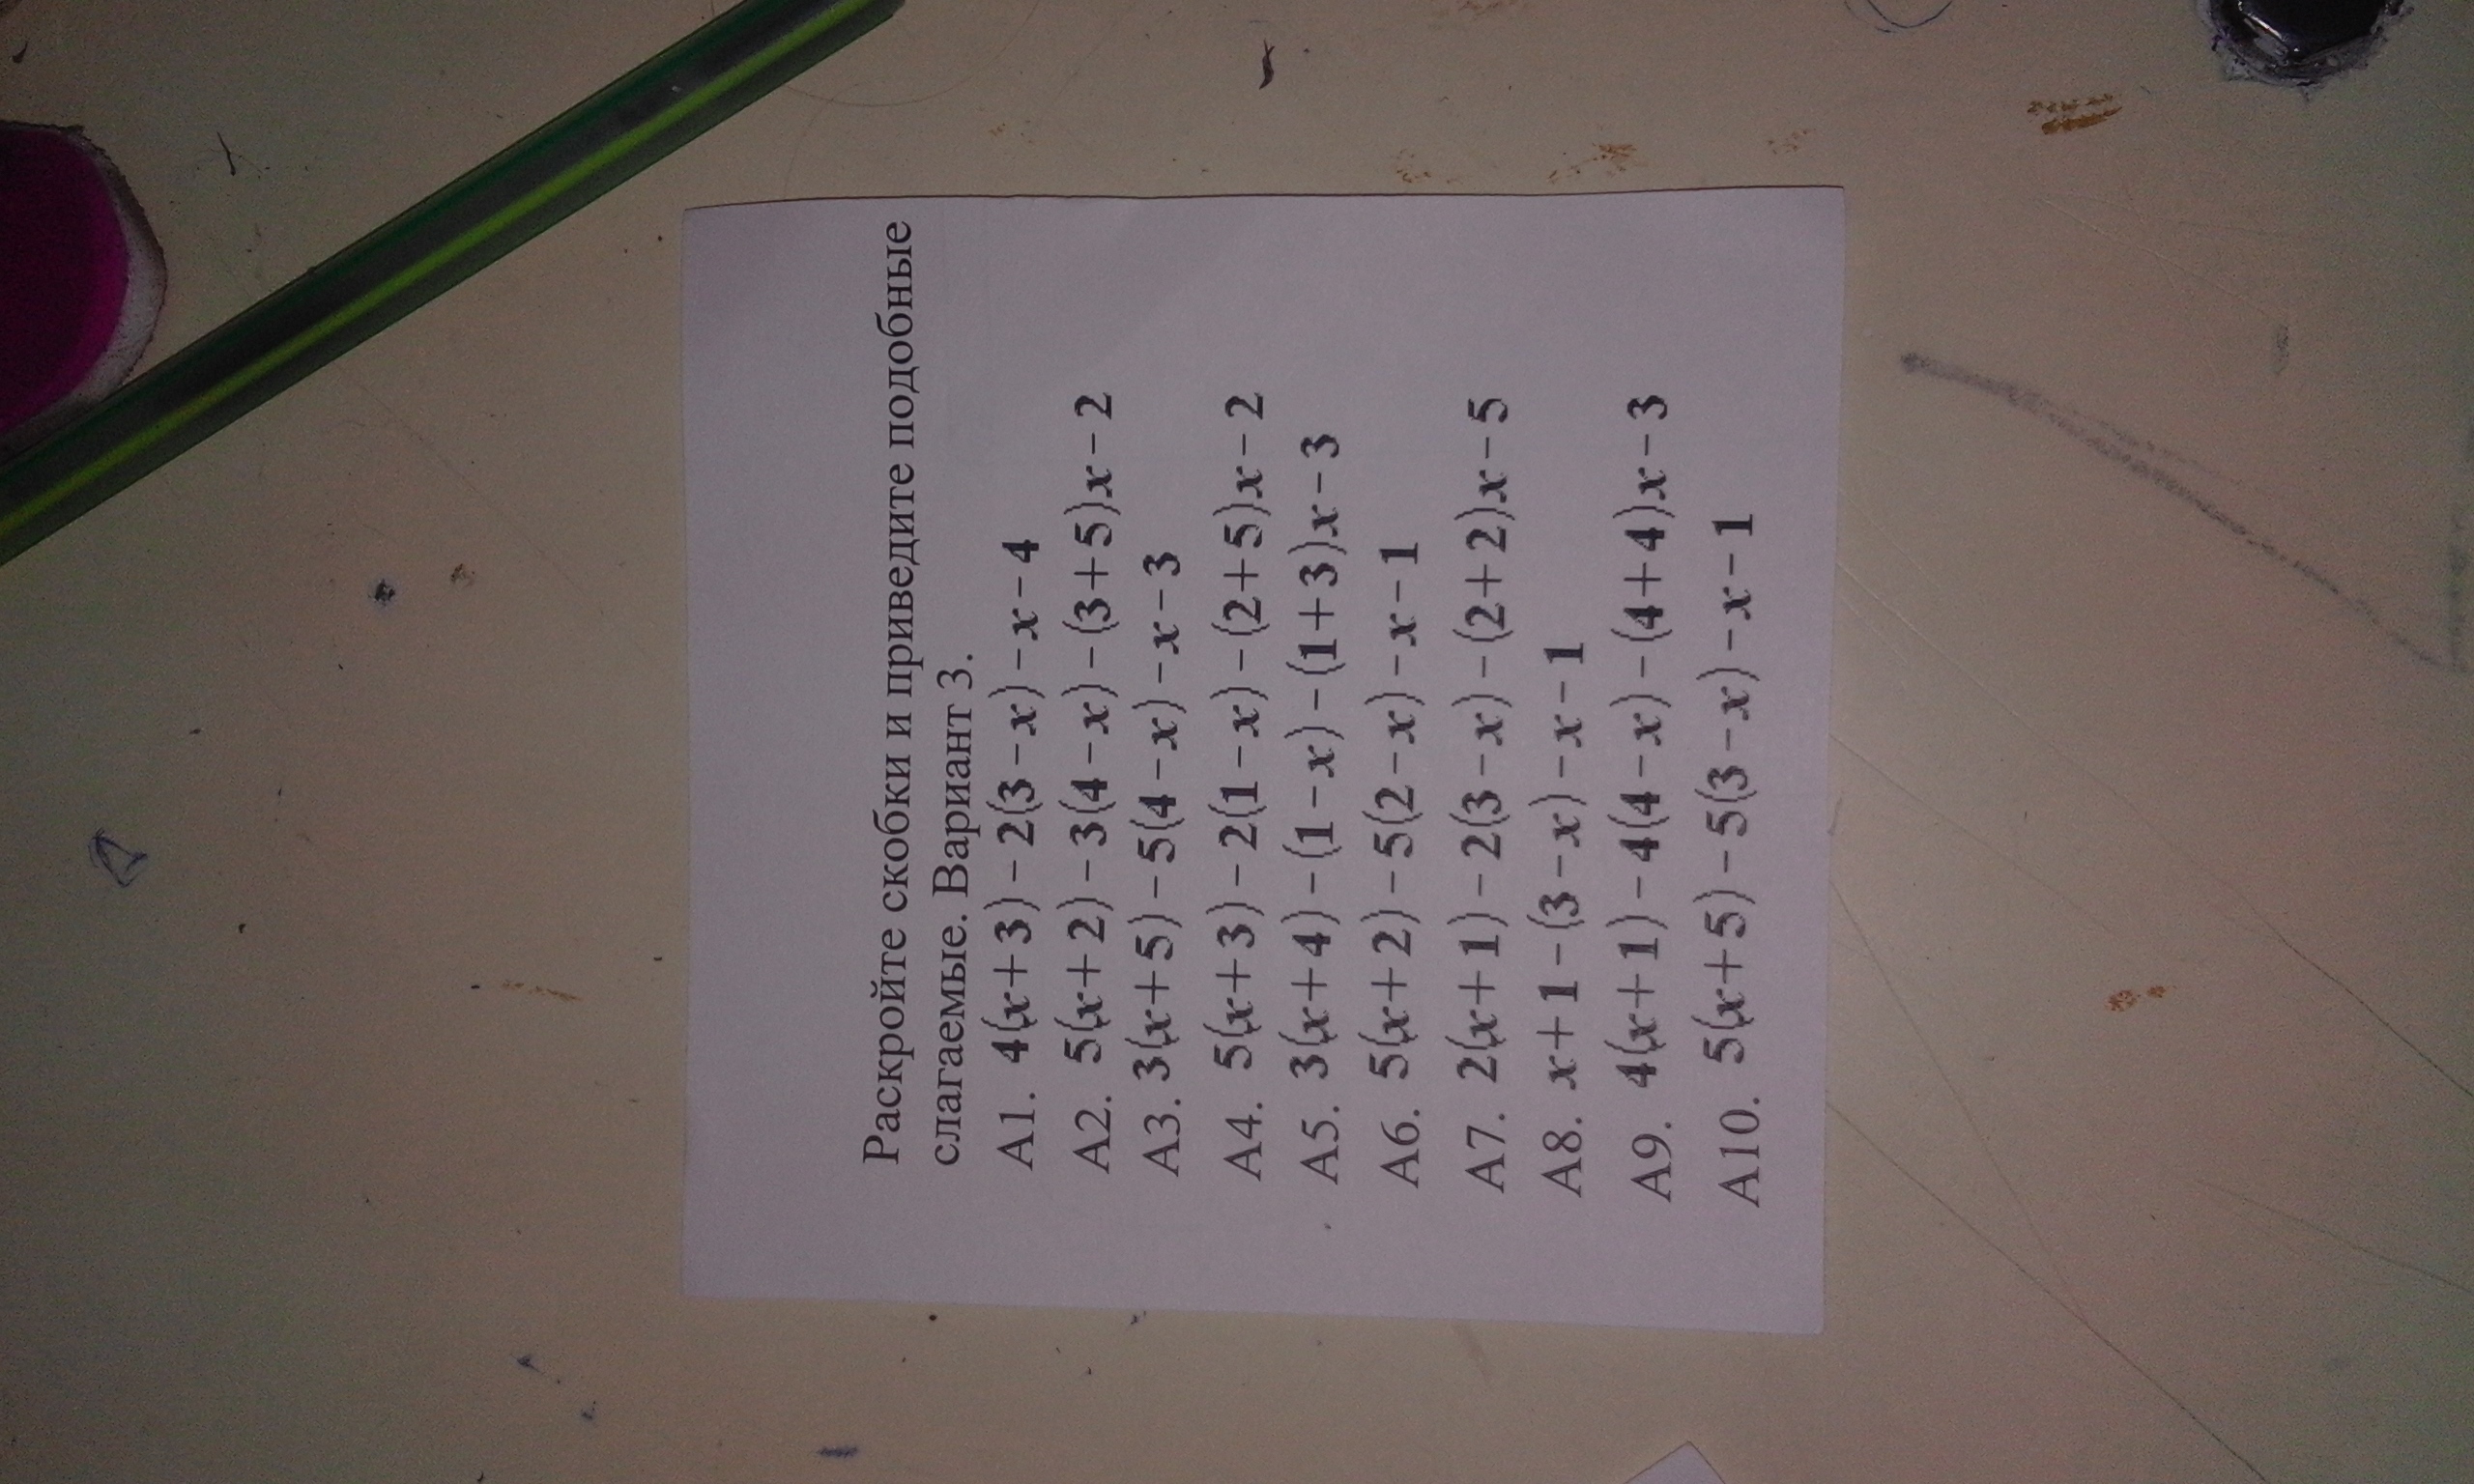 Раскройте скобки и приведите подобные
слагаемые. Вариант 3.
А1. 4(x+3)−2(3−x)−x−4
А2. 5(x+2)−3(4−x)−(3+5)x−2
А3. 3(x+5)−5(4−x)−x−3
А4. 5(x+3)−2(1−x)−(2+5)x−2
А5. 3(x+4)−(1−x)−(1+3)x−3
А6. 5(x+2)−5(2−x)−x−1
А7. 2(x+1)−2(3−x)−(2+2)x−5
А8. x+1−(3−x)−x−1
А9. 4(x+1)−4(4−x)−(4+4)x−3
А10. 5(x+5)−5(3−x)−x−1